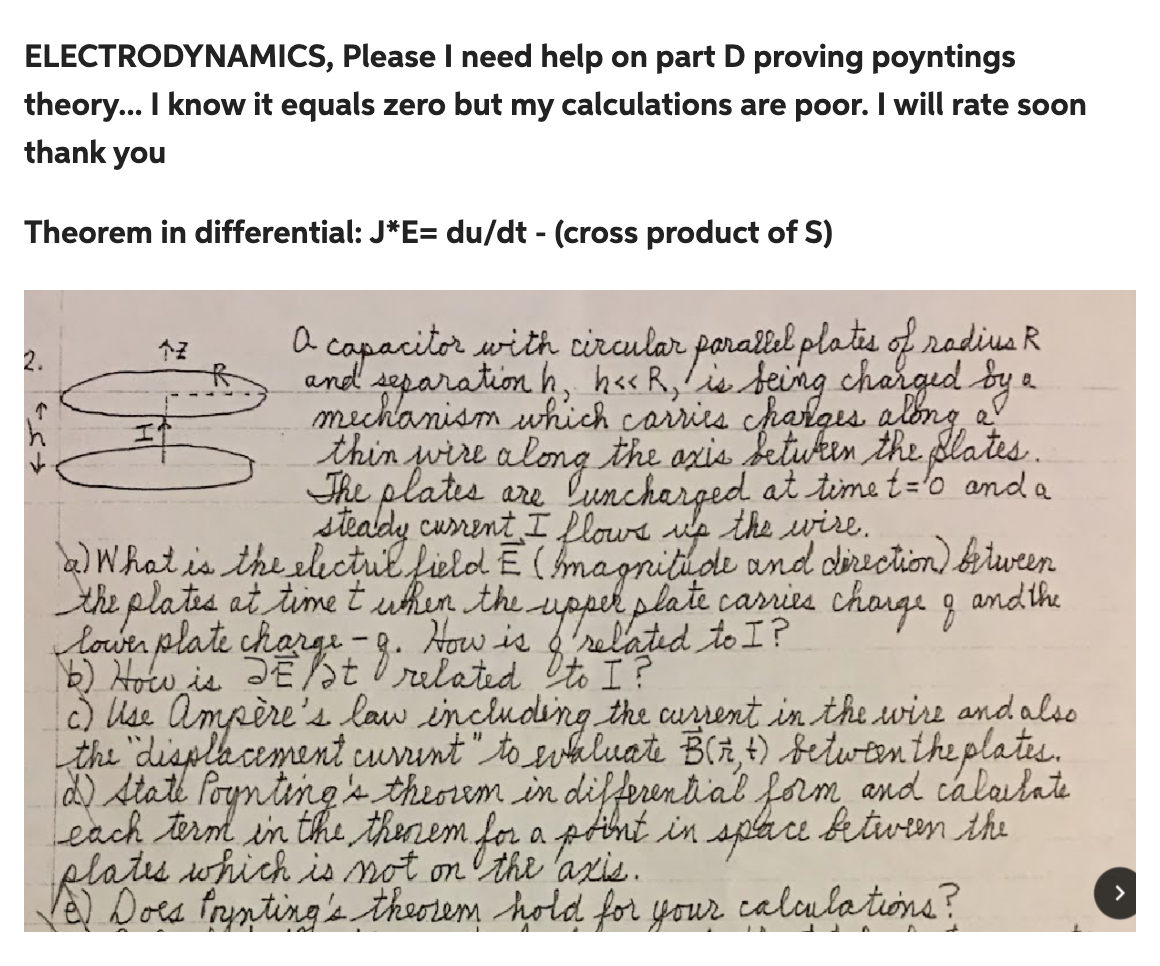 ELECTRODYNAMICS, Please I need help on part D proving poyntings
theory... I know it equals zero but my calculations are poor. I will rate soon
thank you
Theorem in differential: J*E= du/dt - (cross product of S)
2.
↑z
R
h
I
A capacitor with circular parallel plates of radius R
and separation h, h<<R, is being charged by a
mechanism which carries charges along a
thin wire along the axis between the plates.
The plates are uncharged at time t=0 and a
steady current I flows up the wire.
a) What is the electric field E⃗ (magnitude and direction) between
the plates at time t when the upper plate carries charge q and the
lower plate charge -q. How is q related to I?
b) How is ∂E⃗/∂t related to I?
c) Use Ampère's law including the current in the wire and also
the "displacement current" to evaluate B⃗(r⃗,t) between the plates.
d) State Poynting's theorem in differential form and calculate
each term in the theorem for a point in space between the
plates which is not on the axis.
e) Does Poynting's theorem hold for your calculations?